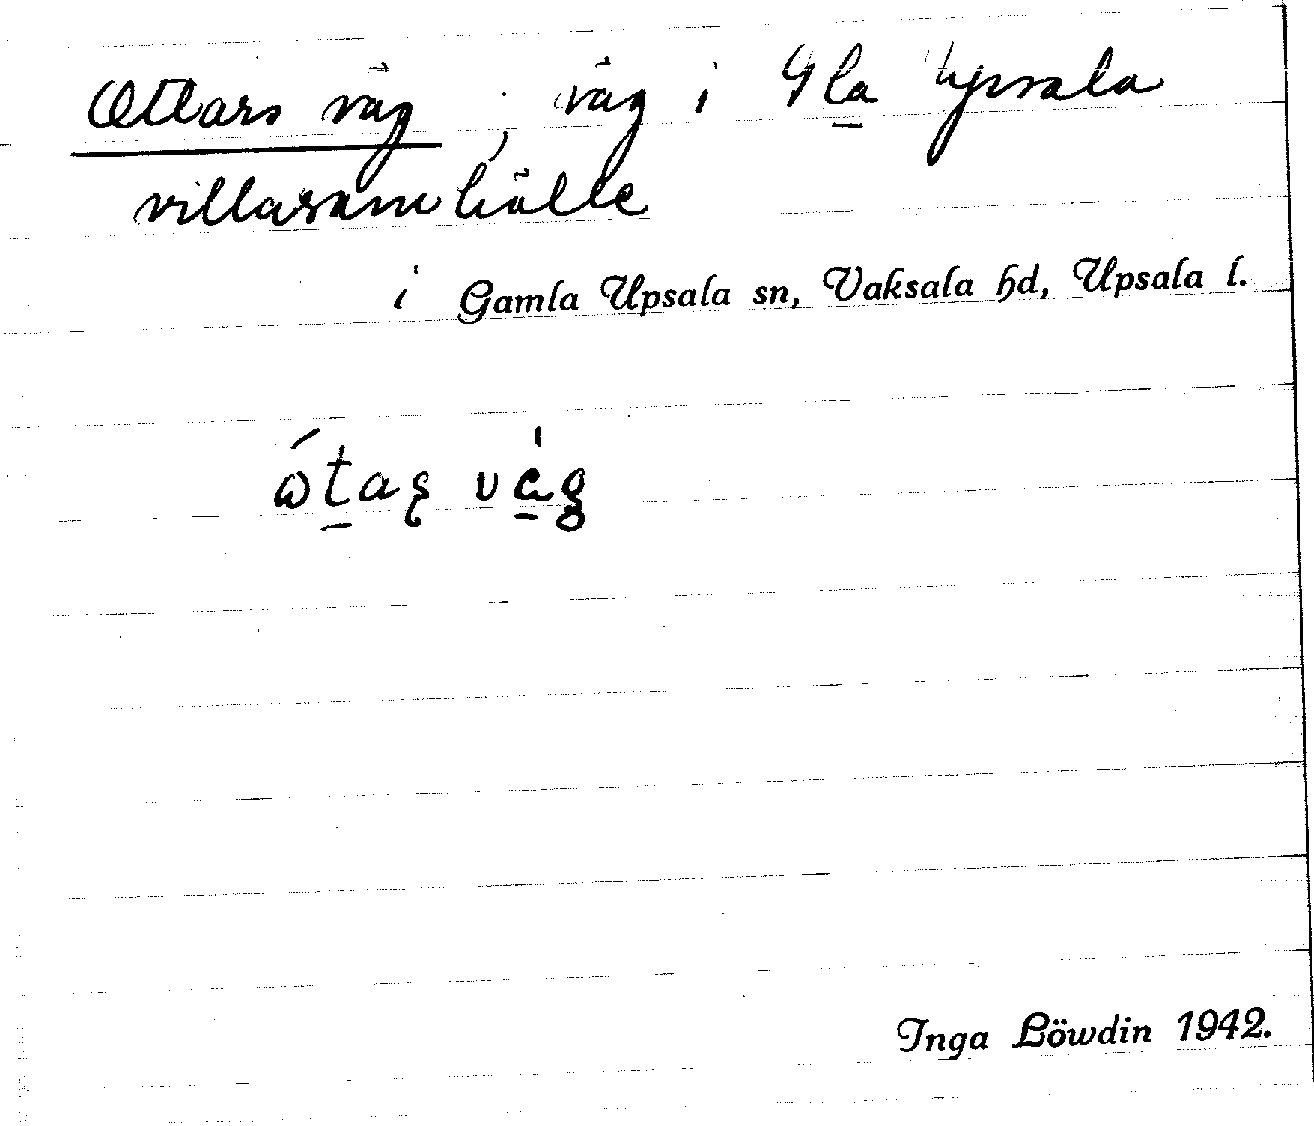 Ottars väg, väg i Gla Upsala
villasamhälle
i Gamla Upsala sn, Vaksala hd, Upsala l.
Inga Löwdin 1942.